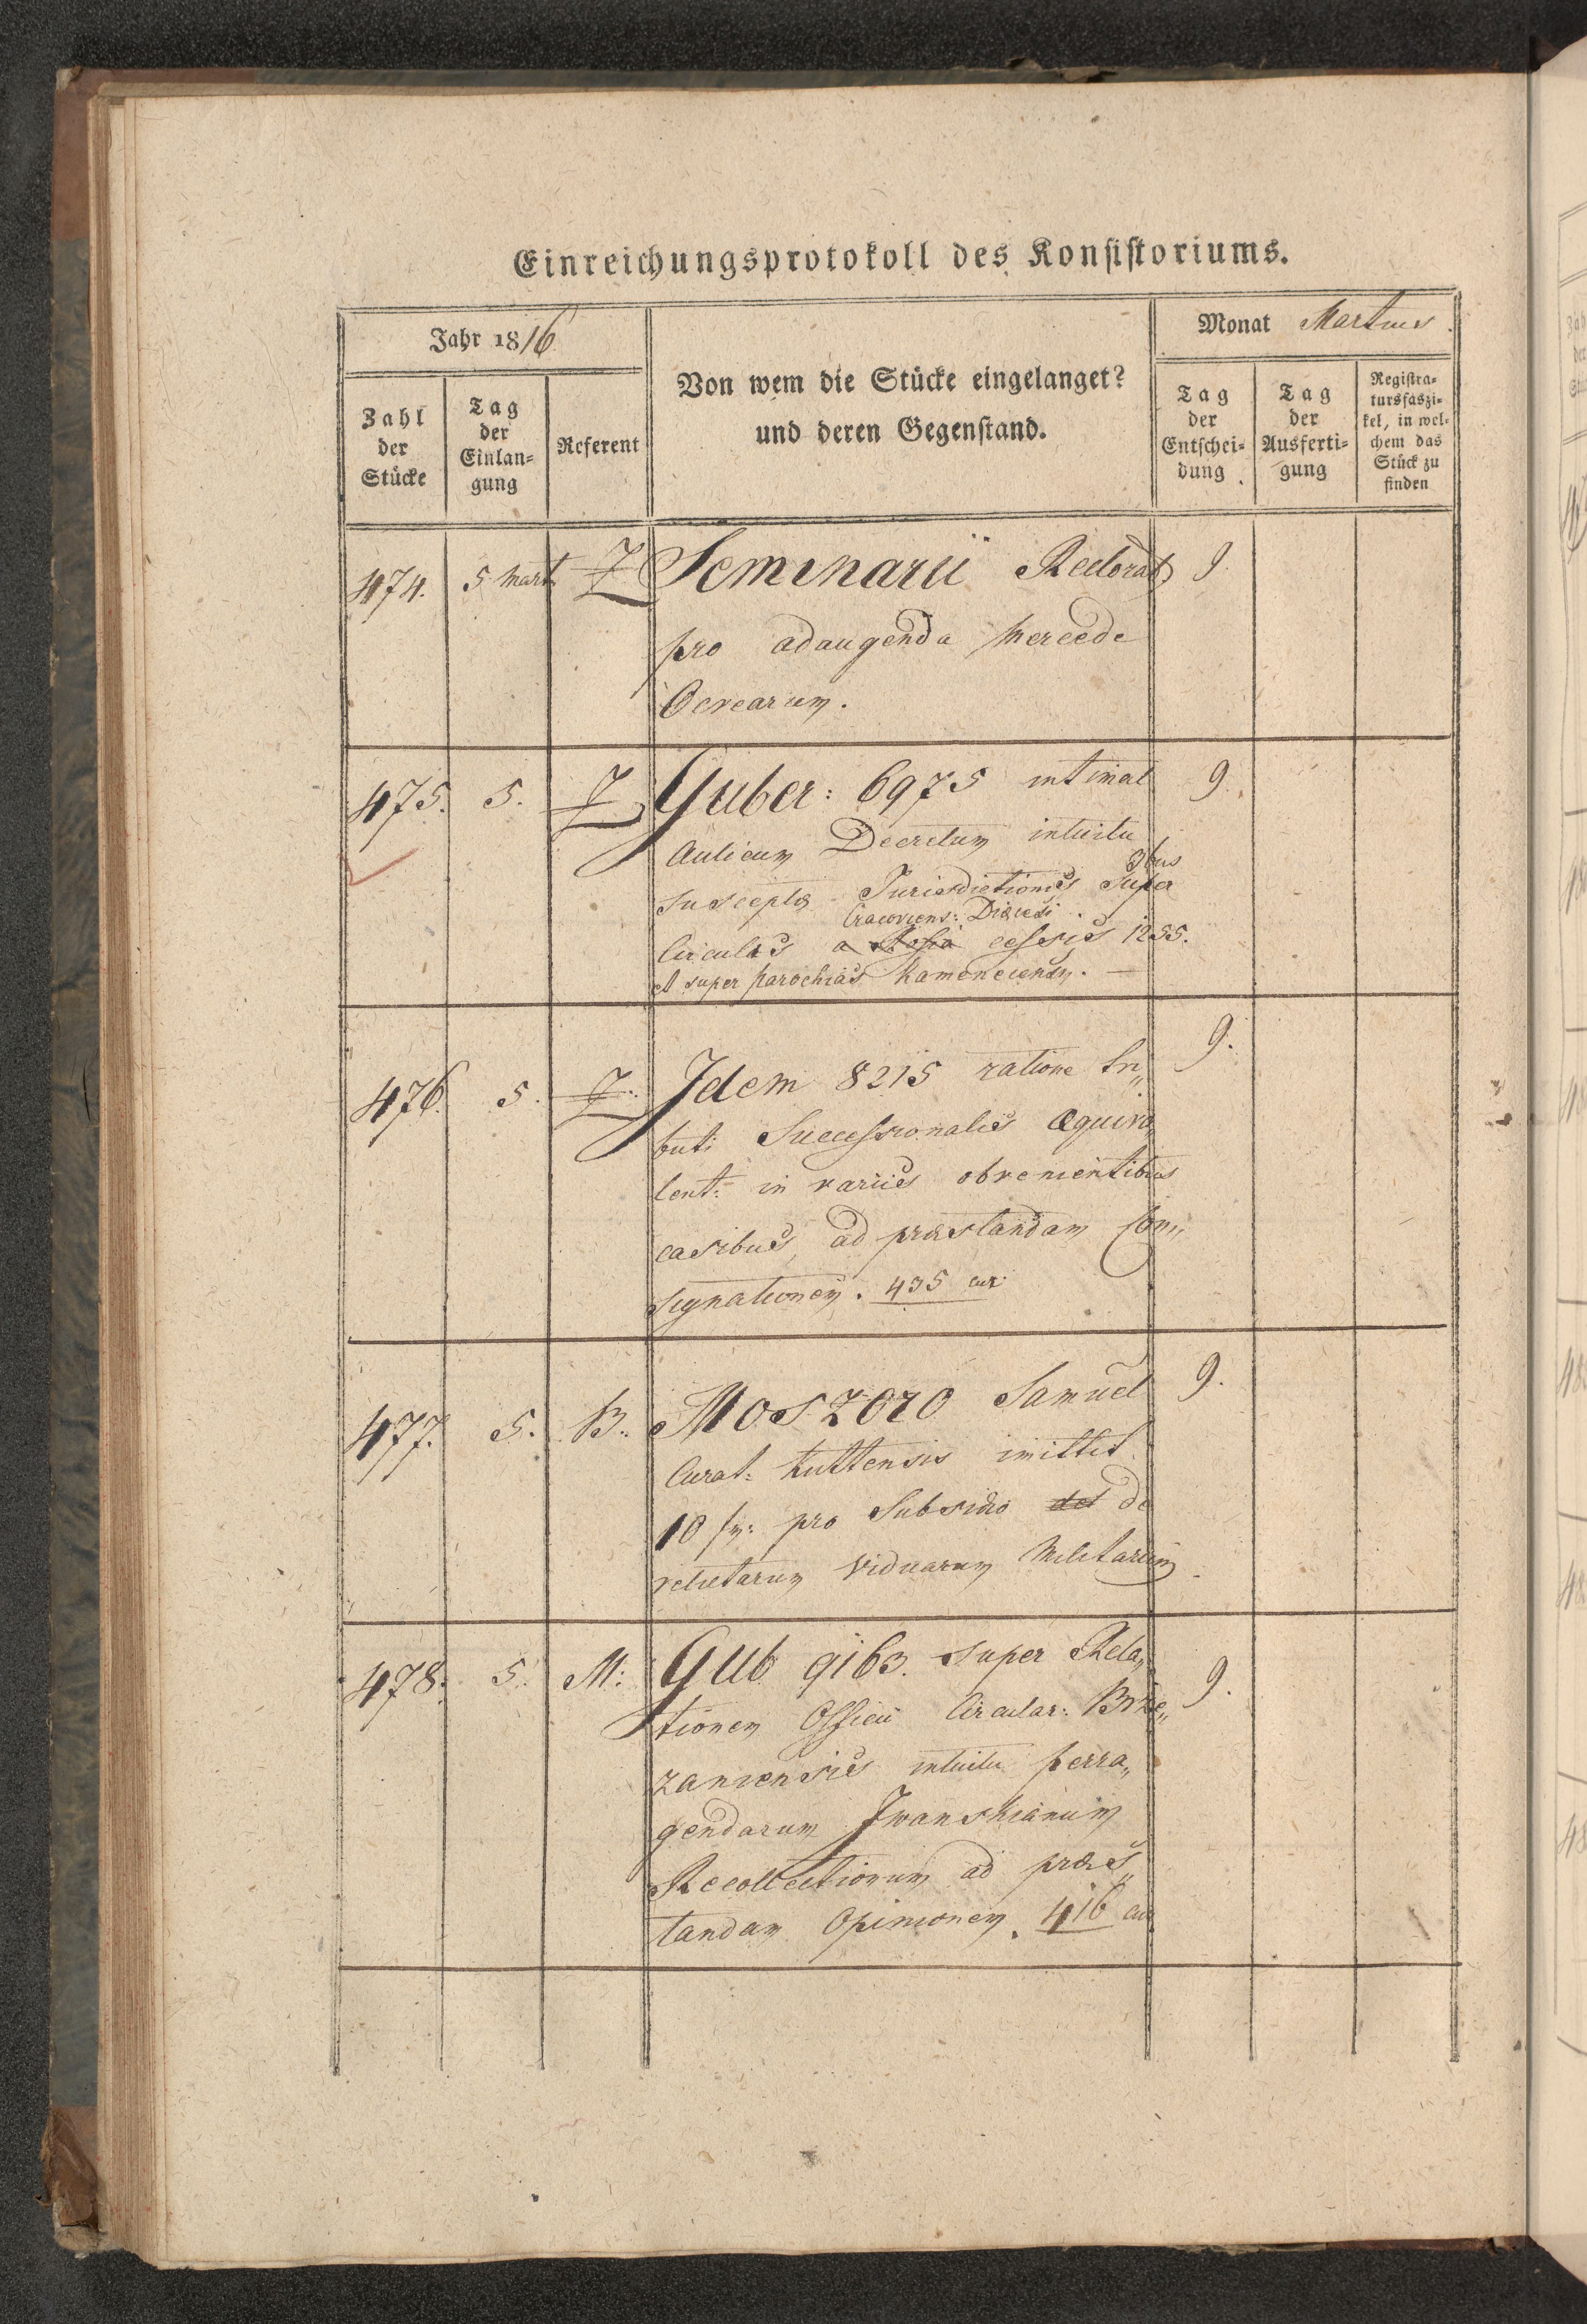 Einreichungsprotokoll des Konsistoriums.
Jahr 1816
Monat Martius.
Zahl der Stücke
Tag der Einlan-gung
Referent
Von wem die Stücke eingelanget?
und deren Gegenstand.
Tag der Entschei-dung
Tag der Ausferti-gung
Registra-tursfaszi-kel, in wel-chem das Stück zu finden
474. 5 Mart Z Seminarii Rectorat 9.
pro adaugenda Mercede
Ocrearum.
475. 5. Z Guber: 6975 intimat 9.
Aulicum Decretum intuitu
susceptæ Jurisdictionis super 3bus
Cracoviens: Diæcesi
Circulis a cessis 1255.
et super parochias Kameneciensem. —
476. 5. Z. Idem 8215 ratione tri„ 9.
buti Successionalis æquiva
lent: in variis obvenientibus
casibus, ad præstandam Con„
signationem. 435 cur:
477. 5. B. Moszoro Samuel 9.
Curat: Kuttensis imittit
10 fr: pro Subsidio det de
relictarum Viduarum Militarium
478. 5. M: Gub 9163. super Rela„ 9.
tionem Officii Circular: Brze„
zaniensis intuitu perra„
gendarum Iwanskianum
Recollectionum ad præs„
tandam Opinionem. 416 cur